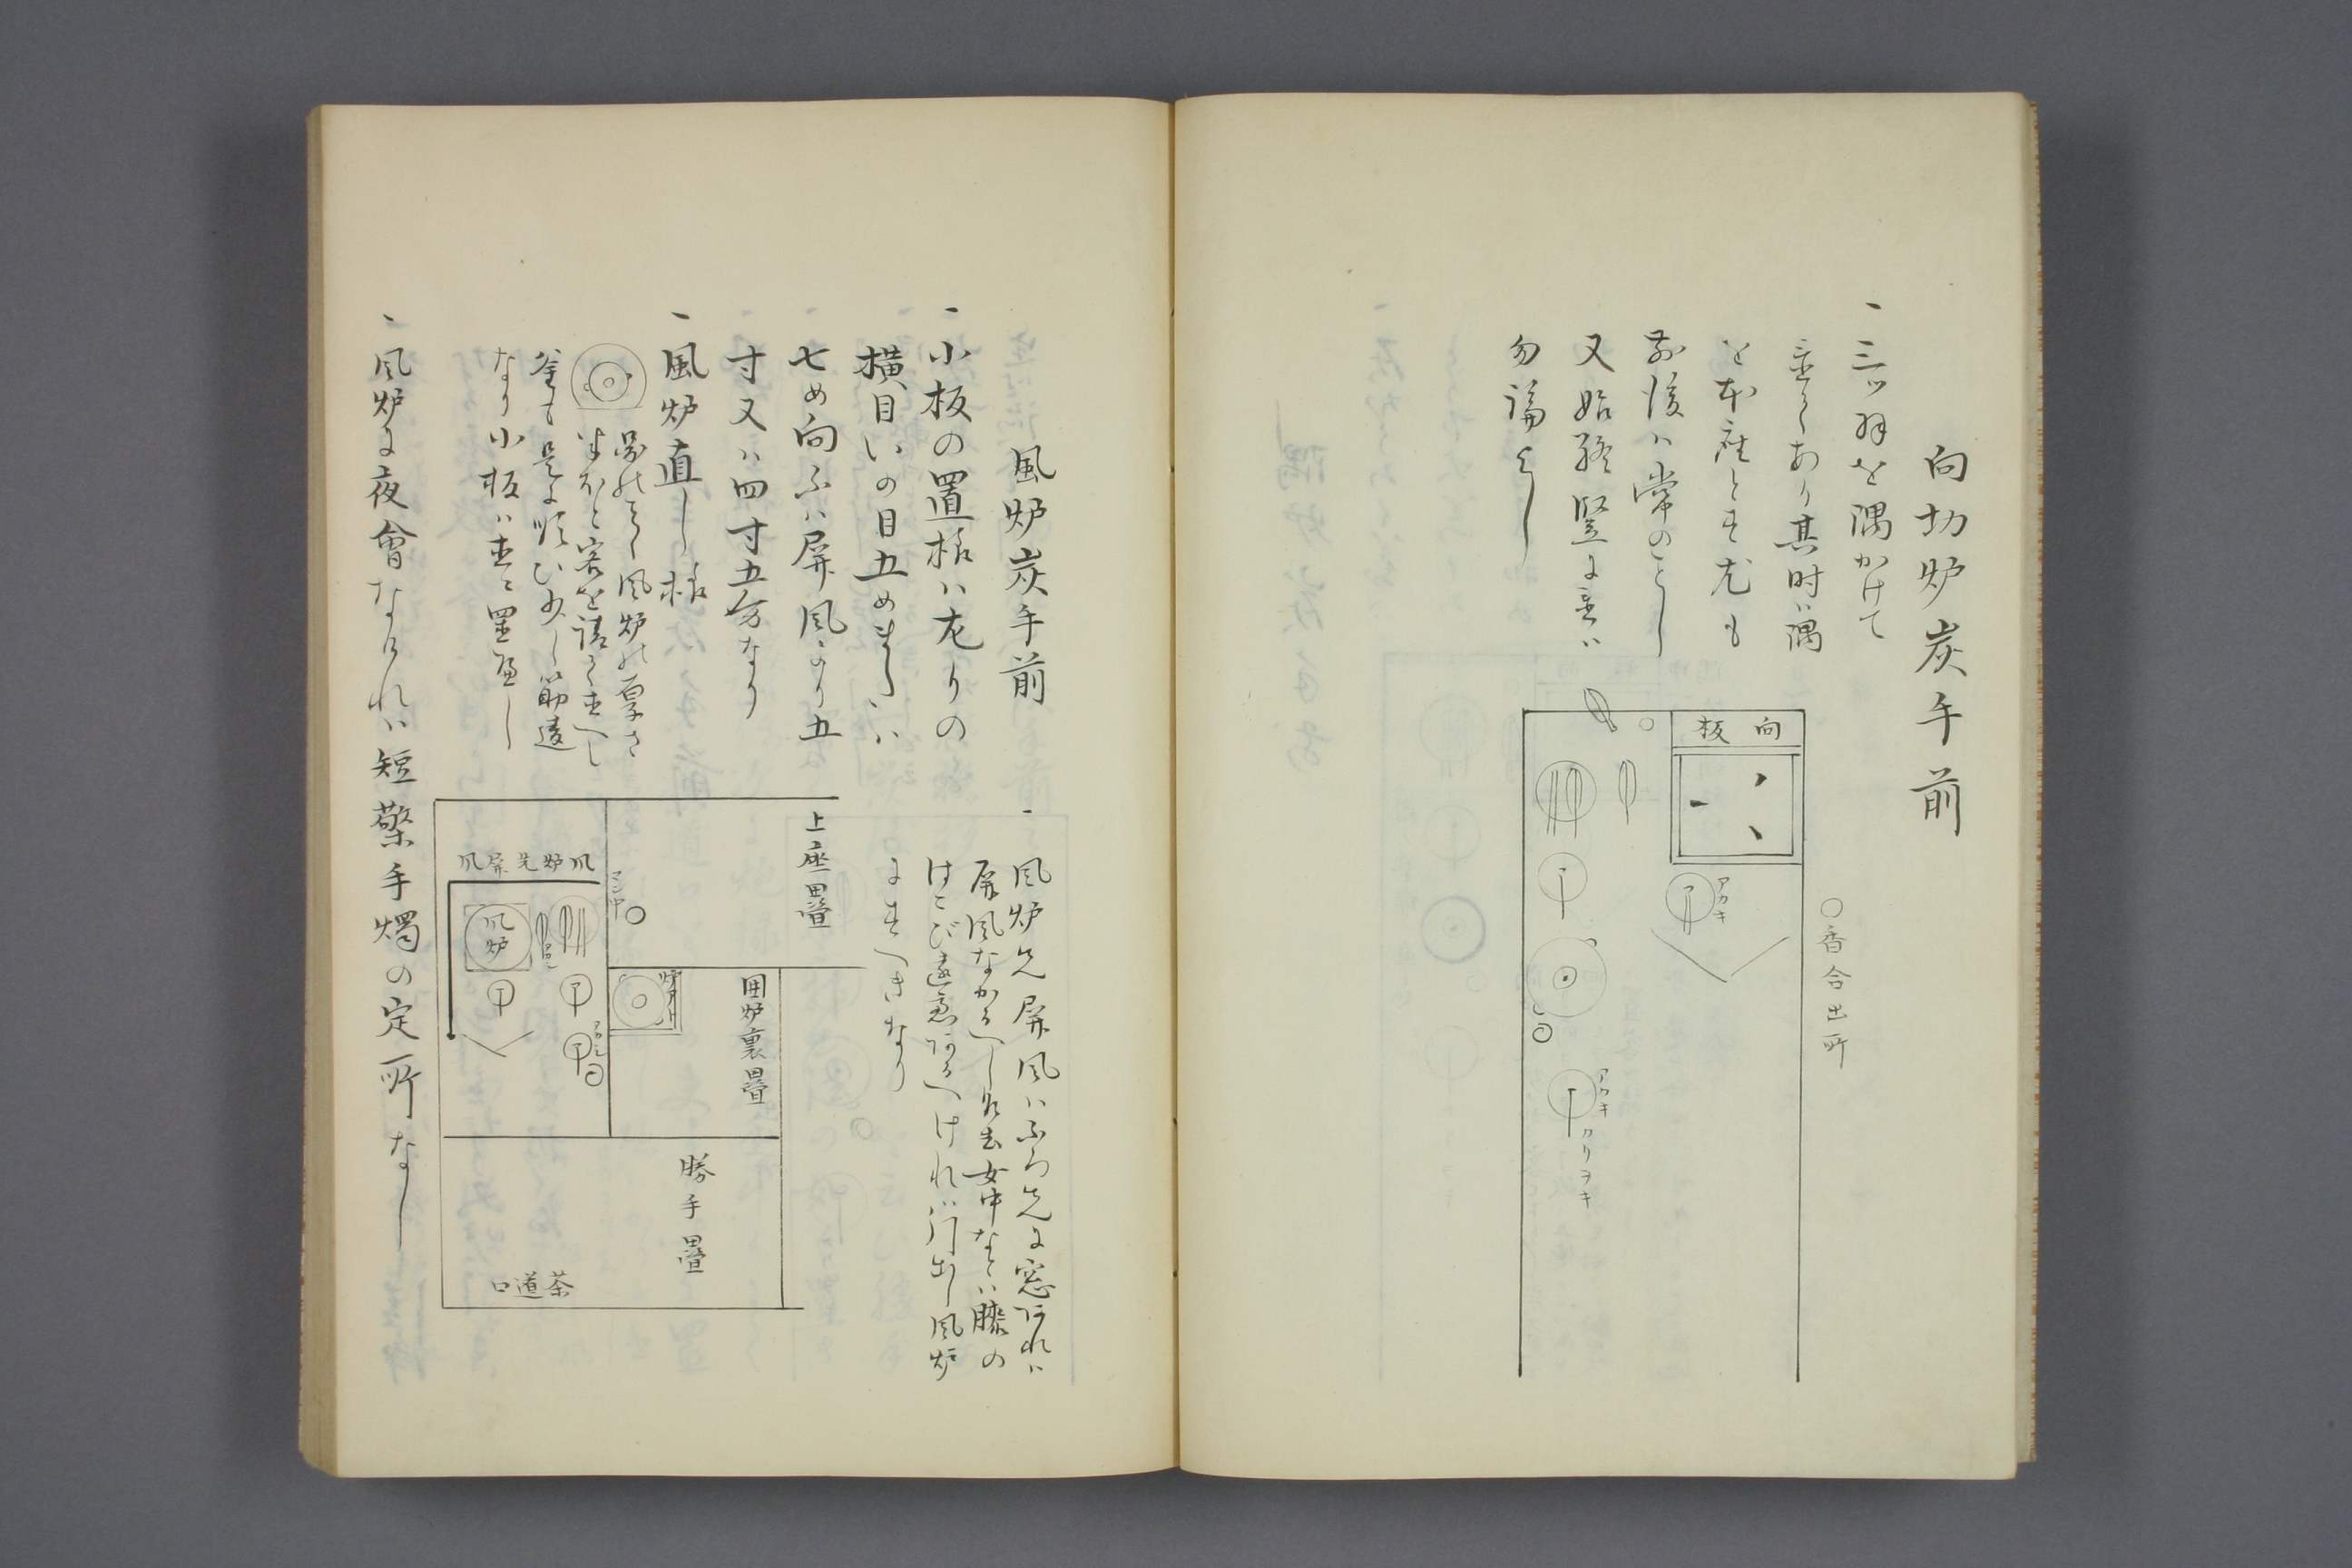 向切炉炭手前
一 三ッ羽を隅かけて
置くあり其時ハ隅
を本座とす尤も
前後ハ常のことし
又始終竪に置ハ
勿論よし
向板
アカキ
○香合出所
アカキ
カリヲキ
風炉炭手前
一 小板の置様ハ左りの
横目いの目五め
七め向ふハ屏風より五
寸又ハ四寸五分なり
一 風炉直し様
風炉の厚さ
客を請
釜も是に順ひ少し筋違
なり小板ハ直に置へし
一 風炉に夜會なけれハ短檠手燭の定所なし
一 風炉先屏風ハふろ先に窓あれハ
屏風なかるへし
女中なとハ膝の
はこび遠慮あるへけれハ
風炉
にすへきなり
上座畳
囲炉裏畳
勝手畳
茶道口
風炉先屏風
風炉